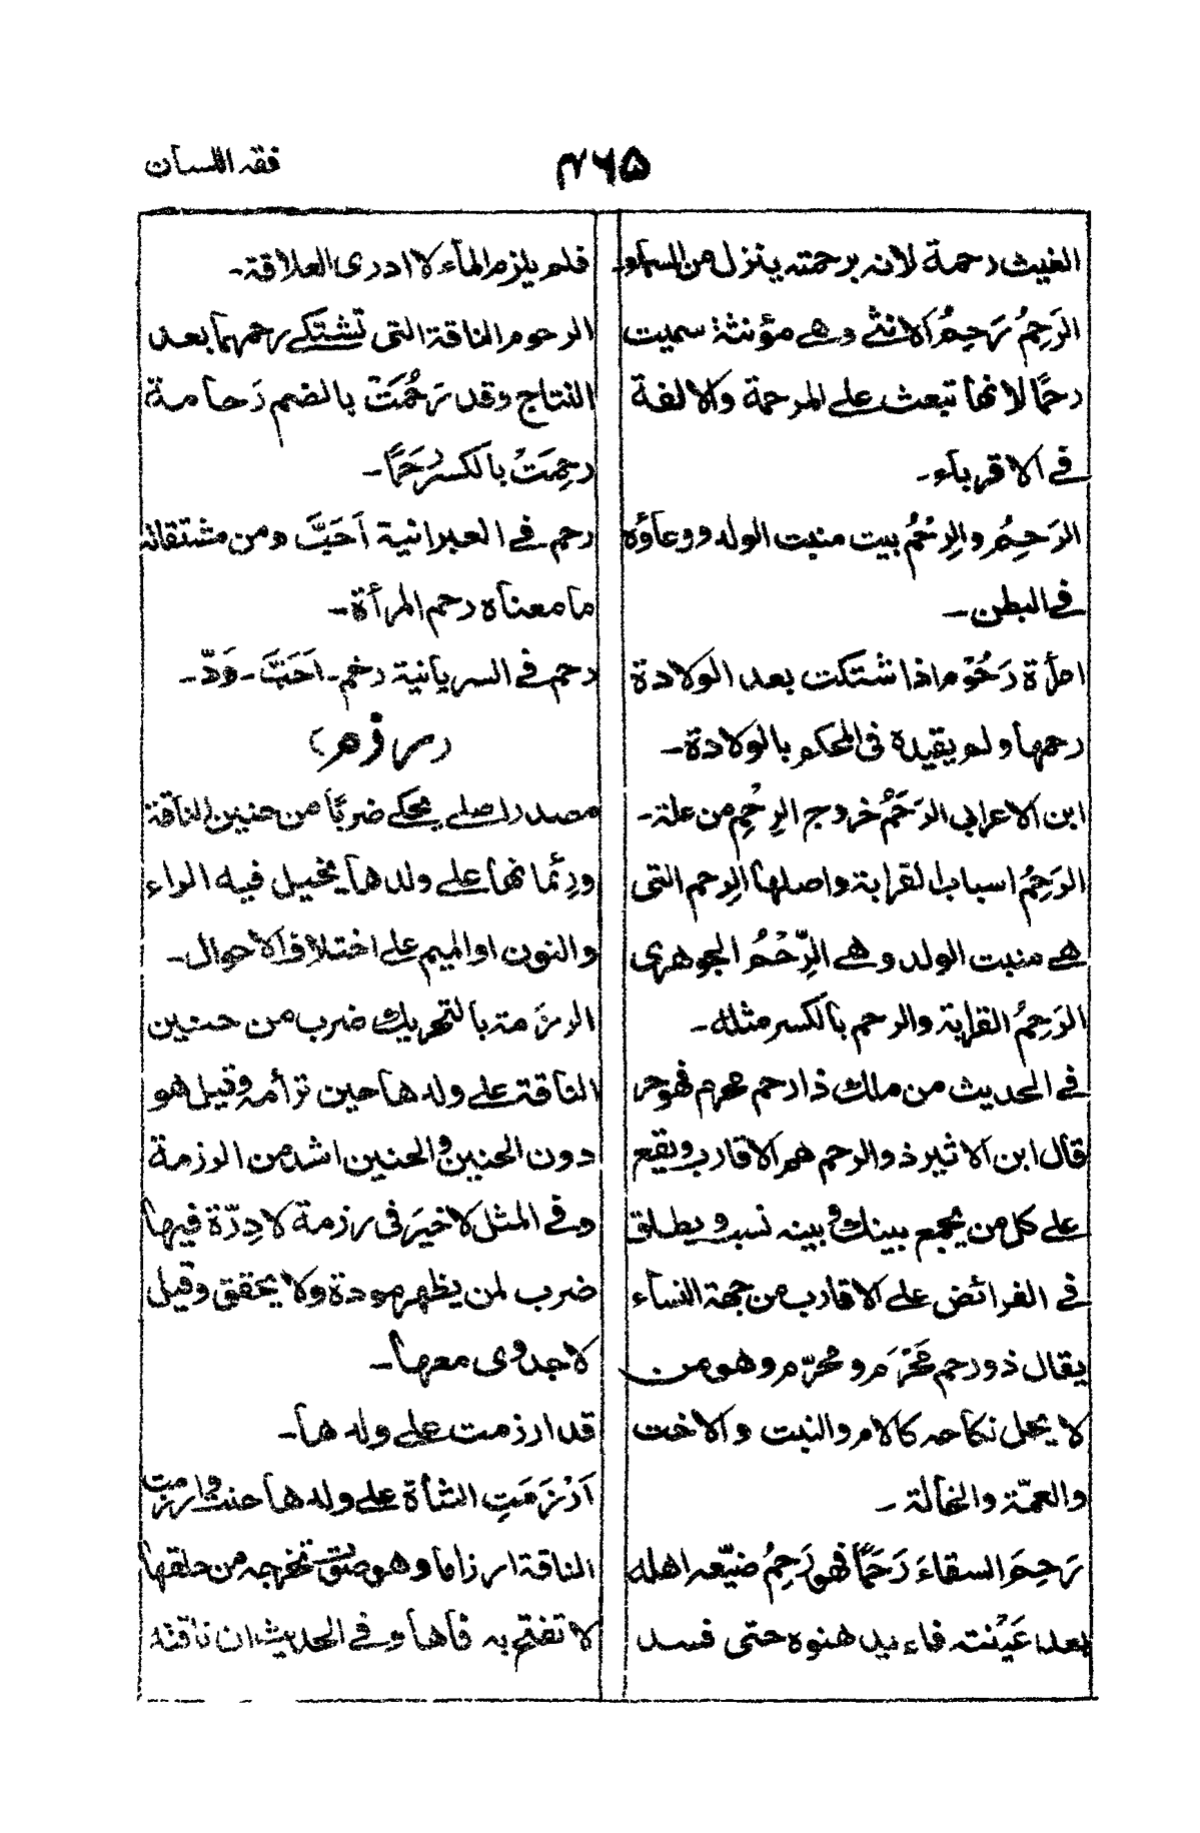 فقه اللسان
۴۶۵
الغيث رحمة لانه برحمته ينزل من السماء و
الرَحِمُ رَحِمُ الانثى وهى مؤنثة سميت
رحمًا لانها تبعث على المرحمة والالفة
فى الاقرباء۔
الرَحِمُ والرِحْمُ بيت منبت الولد ووعاؤه
فى البطن۔
امرأة رَحُوْم اذا اشتكت بعد الولادة
رحمها ولم يقيده فى المحكم بالولادة۔
ابن الاعرابى الرَحَمُ خروج الرِحْمِ من علة۔
الرَحِمُ اسباب القرابة واصلها الرحم التى
هى منبت الولد وهى الرِّحْمُ الجوهرى
الرَحِمُ القرابة والرحم بالكسر مثله۔
فى الحديث من ملك ذا رحم محرم فهو حر
قال ابن الاثير ذو الرحم هم الاقارب ويقع
على كل من يجمع بينك وبينه نسب ويطلق
فى الفرائض على الاقارب من جهة النساء
يقال ذو رحم مَحْرَم ومُحرّم وهو من
لا يحل نكاحه كالام والبنت والاخت
والعمّة والخالة۔
رَحِمَ السقاءَ رَحَمًا فهو رَحِمُ ضيّعه اهله
بعد عَيْنته فلم يدهنوه حتى فسد
فلم يلزم الماء لا ادرى العلاقة۔
الرحوم الناقة التى تشتكى رحمها بعد
النتاج وقد رَحُمَتْ بالضم رَحامة
رحِمَتْ بالكسر رَحَمًا۔
رحم فى العبرانية اَحَبَّ ومن مشتقاته
ما معناه رحم المرأة۔
رحم فى السريانية رخم۔ اَحَبَّ۔ وَدّ۔
(رزم)
مصدر اصلى يحكى ضربًا من حنين الناقة
ورِئمانها على ولدها يخيل فيه الراء
والنون او الميم على اختلاف الاحوال۔
الرزَمة بالتحريك ضرب من حنين
الناقة على ولدها حين ترأمه وقيل هو
دون الحنين والحنين اشد من الرزمة
وفى المثل لا خيرَ فى رزمة لا دِرّة فيها
ضرب لمن يظهر مودة ولا يحقق وقيل
لا جدوى معها۔
قد ارزمت على ولدها۔
اَرْزَمَتِ الشاة على ولدها حنت وارزمت
الناقة ارزاما وهو صوت تخرجه من حلقها
لا تفتح به فاها وفى الحديث ان ناقته